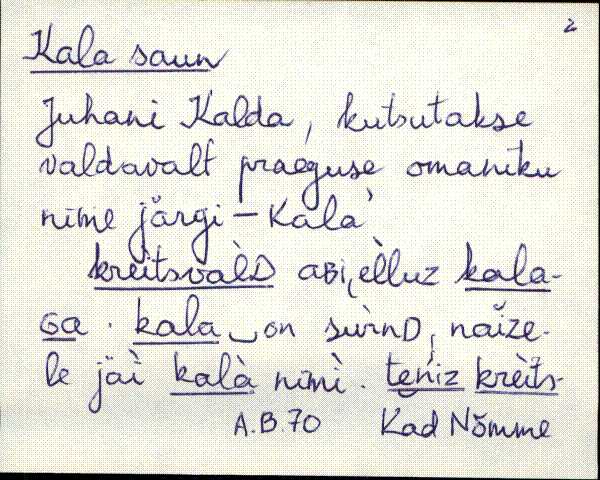 2
Kala saun
Juhani Kalda, kutsutakse
valdavalt praeguse omaniku
nime järgi – Kala'
krèitsvàlD aʙi,èlluz kala-
ɢa. kala on sùrnD, naìze-
le jäì kalà nimì. teńiz krèits-
A.B.70 Kad Nõmme